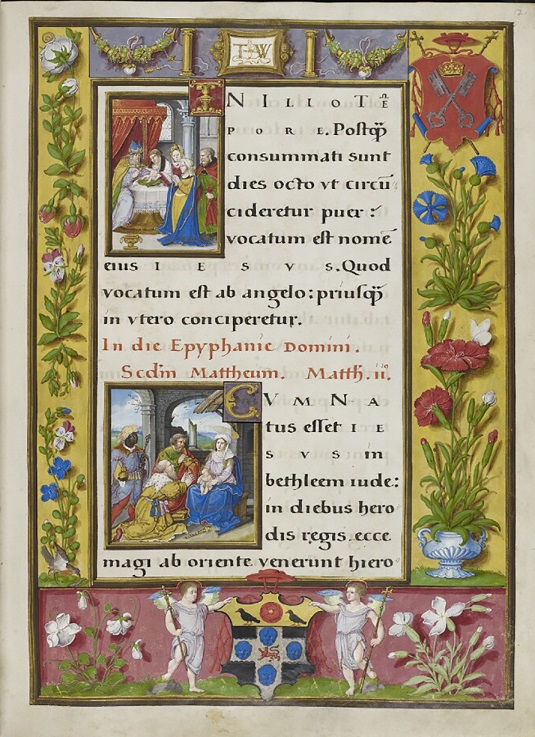 T W
IN ILLO TĒ
PORE. Postq̄
consummati sunt
dies octo vt circū
cideretur puer:
vocatum est nomē
eius IESVS. Quod
vocatum est ab angelo: priusq̄
in vtero conciperetur.
In die Epyphanie Domini.
Scdm Mattheum. Matth. ii.
CVM NA
tus esset IE
SVS in
bethleem iude:
in diebus hero
dis regis. ecce
magi ab oriente venerunt hiero